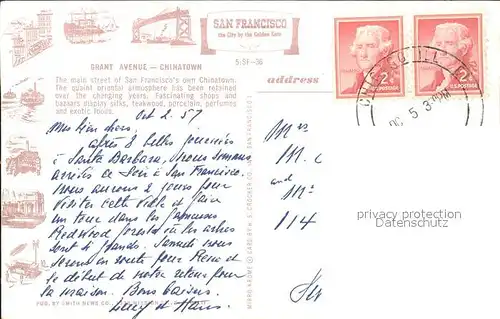 SAN FRANCISCO
the City by the Golden Gate
5:SF-36
GRANT AVENUE — CHINATOWN
The main street of San Francisco's own Chinatown.
The quaint oriental atmosphere has been retained
over the changing years. Fascinating shops and
bazaars display silks, teakwood, porcelain, perfumes
and exotic foods.
address
2¢ 2¢
U.S. POSTAGE U.S. POSTAGE
CHICAGO ILL.
5 3 PM
Oct 2. 57
Mes bien chers,
après 2 belles journées
à Santa Barbara, nous sommes
arrivés ce soir à San Francisco.
Nous aurons 2 jours pour
visiter cette ville et faire
un tour dans les fameuses
Redwood forests où les arbres
sont si grands. Samedi nous
serons en route pour Reno et
le début de notre retour pour
la maison. Bons baisers.
Lucy et Hans.
Mrs
M.
and
Mr
114
privacy protection
Datenschutz
MIRRO-KROME ® CARD BY H. S. CROCKER CO.
PUB. BY SMITH NEWS CO.